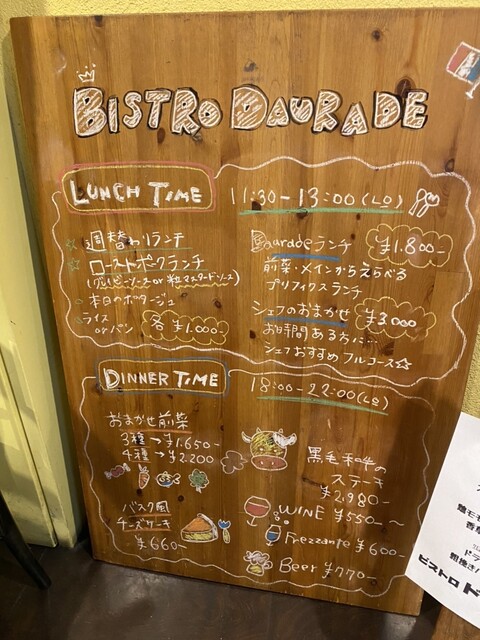 BISTRO DAURADE
LUNCH TIME
11:30-13:00(LO)
週替わりランチ
ローストポークランチ
(グレービーソースor粒マスタードソース)
本日のポタージュ
ライス
orパン
各 ¥1.000-
Dauradeランチ ¥1.800-
前菜・メインからえらべる
プリフィクスランチ
シェフのおまかせ ¥3.000
お時間ある方に…
シェフおすすめフルコース☆
DINNER TIME
18:00-22:00(LO)
おまかせ前菜
3種→¥1.650-
4種→¥2.200
バスク風
チーズケーキ
¥660-
黒毛和牛の
ステーキ
¥2.980-
WINE ¥550-~
Frezzante ¥600-
Beer ¥770-
香草
粗挽き
ビストロ ド